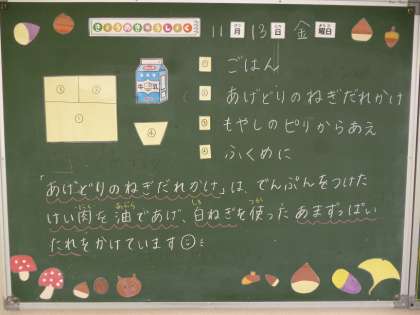 きょうのきゅうしょく
11月13日金曜日
ごはん
① あげどりのねぎだれかけ
もやしのピリからあえ
④ ふくめに
牛乳
「あげどりのねぎだれかけ」は、でんぷんをつけた
けい肉を油であげ、白ねぎを使ったあまずっぱい
たれをかけています